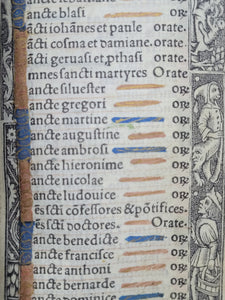 ancte blasi or̄.
ācti iohānes et paule orate.
ācti cosma et damiane. orate.
ācti geruasi et ꝓthasi orate.
mnes sancti martyres Orate.
ancte siluester or̄.
ancte gregori or̄.
ancte martine or̄.
ancte augustine or̄.
ancte ambrosi or̄.
ancte hieronime or̄.
ancte nicolae or̄.
ancte ludouice or̄.
ēs scti cōfessores & pōtifices.
ēs scti doctores. Orate.
ancte benedicte or̄.
ancte francisce or̄.
ancte anthoni or̄.
ancte bernarde or̄.
ancte dominice or̄.